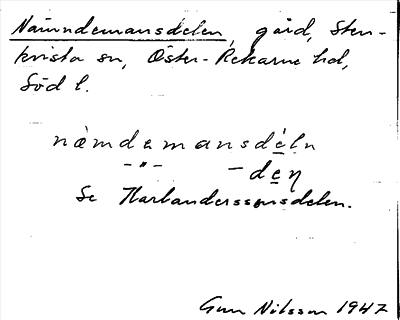 Nämndemansdelen, gård, Sten-
kvista sn, Öster-Rekarne hd,
Söd l.
nä̀mdemansdéln
–"– –den
Se Harlanderssonsdelen.
Gun Nilsson 1947